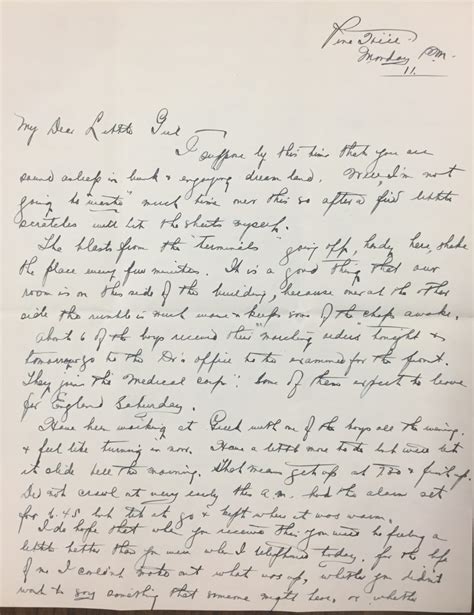 Pine Hill
Monday P.M.
11.
My Dear Little Girl
I suppose by this time that you are
sound asleep in bunk & enjoying dream land. Well, I'm not
going to "waste" much time over this so after a few little
scratches will hit the sheets myself.
The blasts from the "terminals" going off, handy here, shake
the place every few minutes. It is a good thing that our
room is on this side of the building, because over at the other
side the rumble is much worse & keeps some of the chaps awake.
about 6 of the boys received their "marching orders" tonight &
tomorrow go to the Dr's office to be examined for the front.
They join the "Medical Corps". Some of them expect to leave
for England Saturday.
Have been working at with one of the boys all the evening
& feel like turning in now. Have a little more to do but will let
it slide till the morning. That means get up at 7.30 &
Did not crawl out very early this a.m. had the alarm set
for 6.45 but let it go & kept where it was warm.
I do hope that when you receive this you will be feeling a
little better than you were when I telephoned today, for the life
of me I couldn't make out what was up, whether you didn't
want to say something that someone might hear, or whether